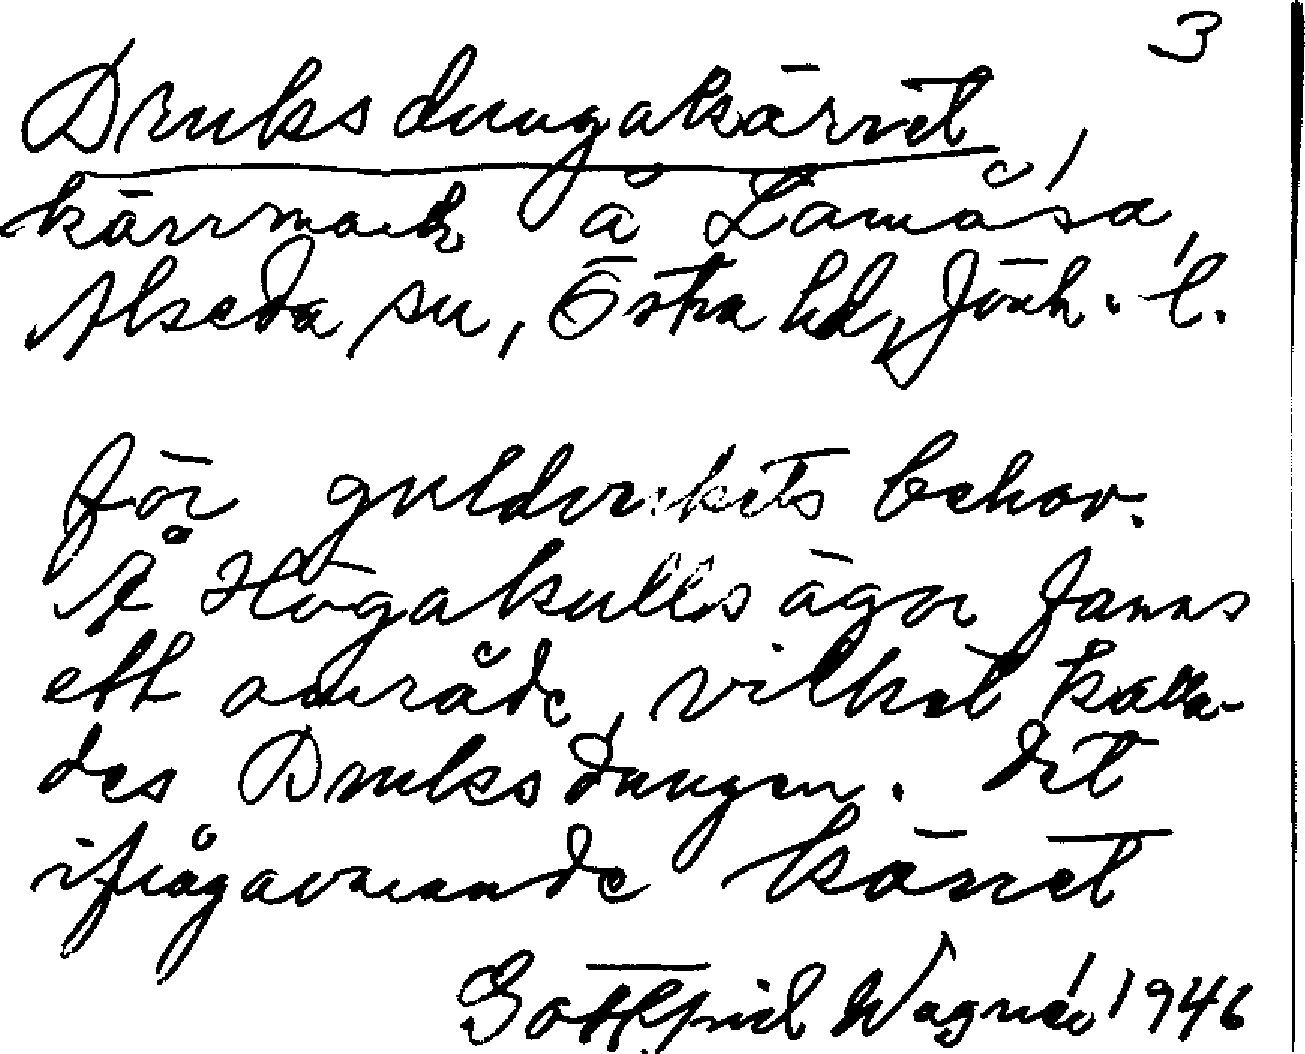 3
Bruksdungakärret,
kärrmark å Lamåsa,
Alseda sn, Östra hd, Jönk. l.
för guldverkets behov.
Å Högakulls ägor fanns
ett område, vilket kalla-
des Bruksdungen. Det
ifrågavarande kärret
Gottfrid Wagnér 1946